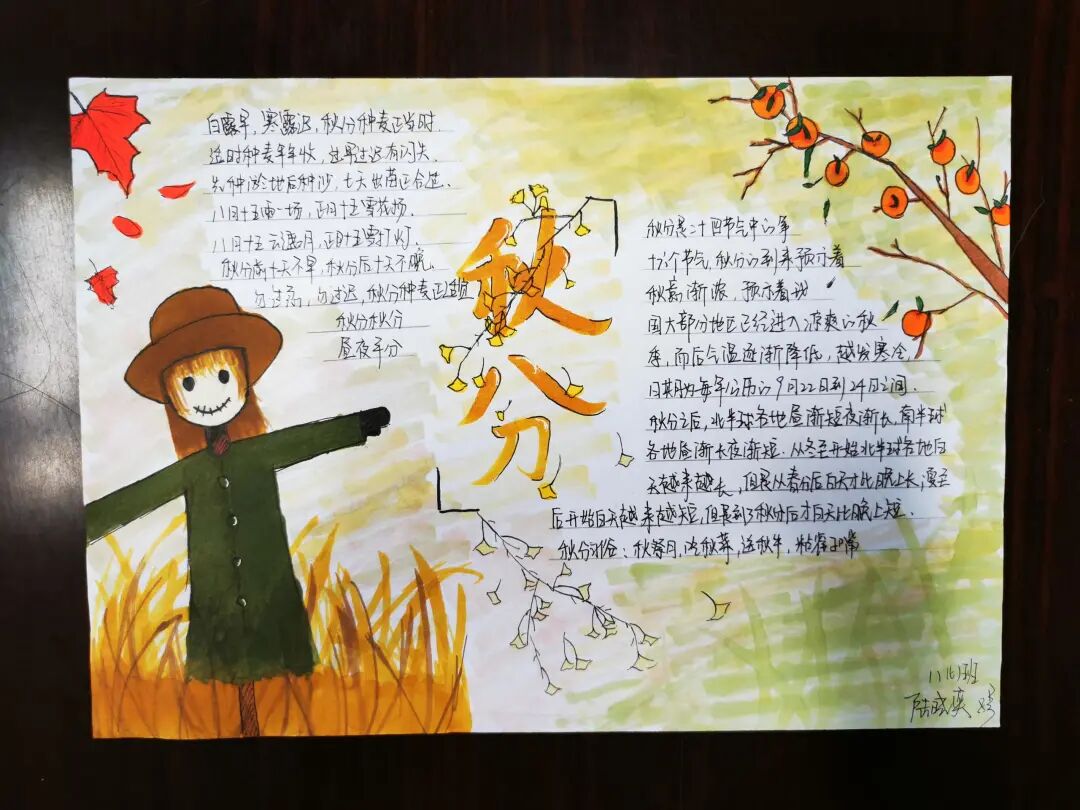 白露早,寒露迟,秋分种麦正当时.
适时种麦年年收,过早过迟有闪失.
先种淤地后种沙,七天出苗正合适.
八月十五雨一场,正月十五雪花扬.
八月十五云遮月,正月十五雪打灯.
秋分前十天不早,秋分后十天不晚.
勿过急,勿过迟,秋分种麦正适宜
秋分秋分
昼夜平分
秋分
秋分是二十四节气中的第
十六个节气,秋分的到来预示着
秋意渐浓,预示着我
国大部分地区已经进入凉爽的秋
季,而后气温逐渐降低,越发寒冷,
日期为每年公历的9月22日到24日之间.
秋分之后,北半球各地昼渐短夜渐长,南半球
各地昼渐长夜渐短.从冬至开始北半球各地白
天越来越长,但是从春分后白天才比晚上长;夏至
后开始白天越来越短,但是到了秋分后才白天比晚上短.
秋分习俗:秋祭月,吃秋菜,送秋牛,粘雀子嘴
班